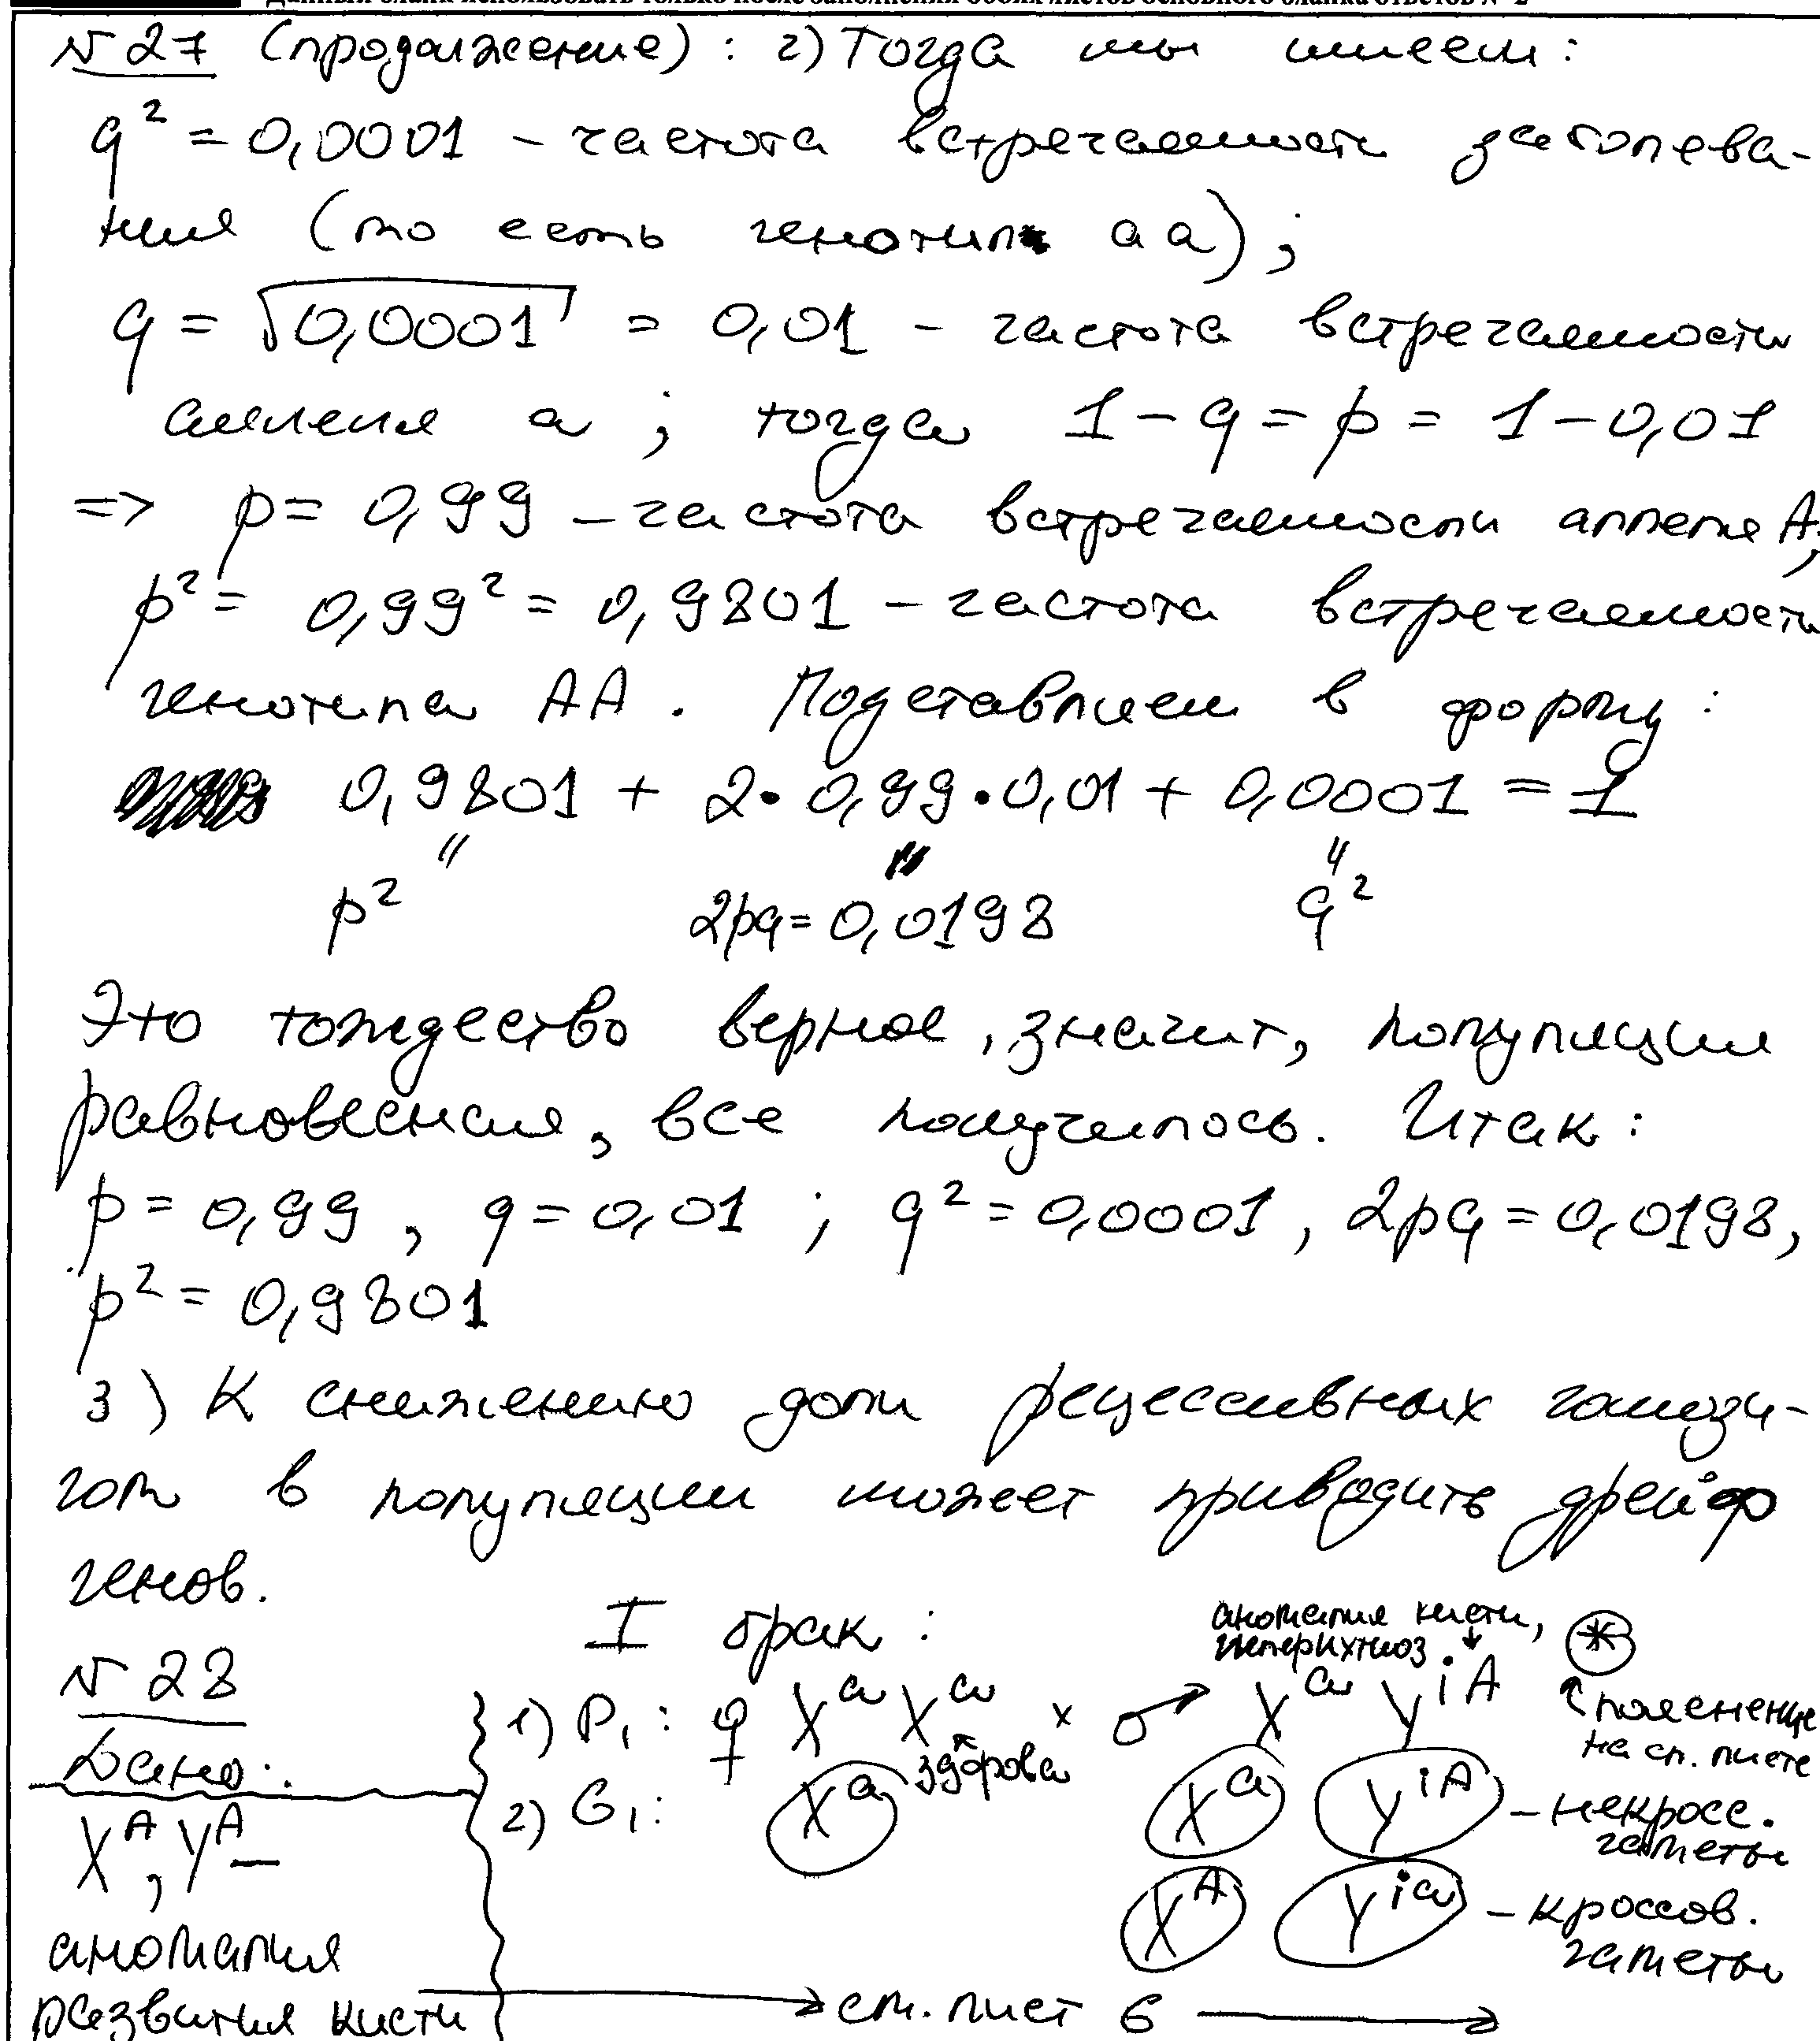 Данный бланк использовать только после заполнения обоих листов основного бланка ответов № 2
N 27 (продолжение) : 2) Тогда мы имеем:
q² = 0,0001 – частота встречаемости заболева-
ния (то есть генотип аа);
q = √0,0001 = 0,01 – частота встречаемости
аллеля а ; тогда 1 – q = p = 1 – 0,01
=> p = 0,99 – частота встречаемости аллеля А;
p² = 0,99² = 0,9801 – частота встречаемости
генотипа АА. Подставляем в форму:
0,9801 + 2·0,99·0,01 + 0,0001 = 1
" " "
p² 2pq = 0,0198 q²
Это тождество верное, значит, популяция
равновесная, все получилось. Итак:
p = 0,99, q = 0,01 ; q² = 0,0001, 2pq = 0,0198,
p² = 0,9801
3) К снижению доли рецессивных гомози-
гот в популяции может приводить дрейф
генов.
N 28
Дано:
X^A, Y^A –
аномалия
развития кисти
I брак:
аномалия кисти,
гиперихтиоз
1) P₁: ♀ X^a X^a × ♂ X^a Y^iA
здорова
* пояснение
на сл. листе
2) G₁: X^a X^a Y^iA – некросс.
гаметы
X^A Y^ia – кроссов.
гаметы
→ см. лист 6 →